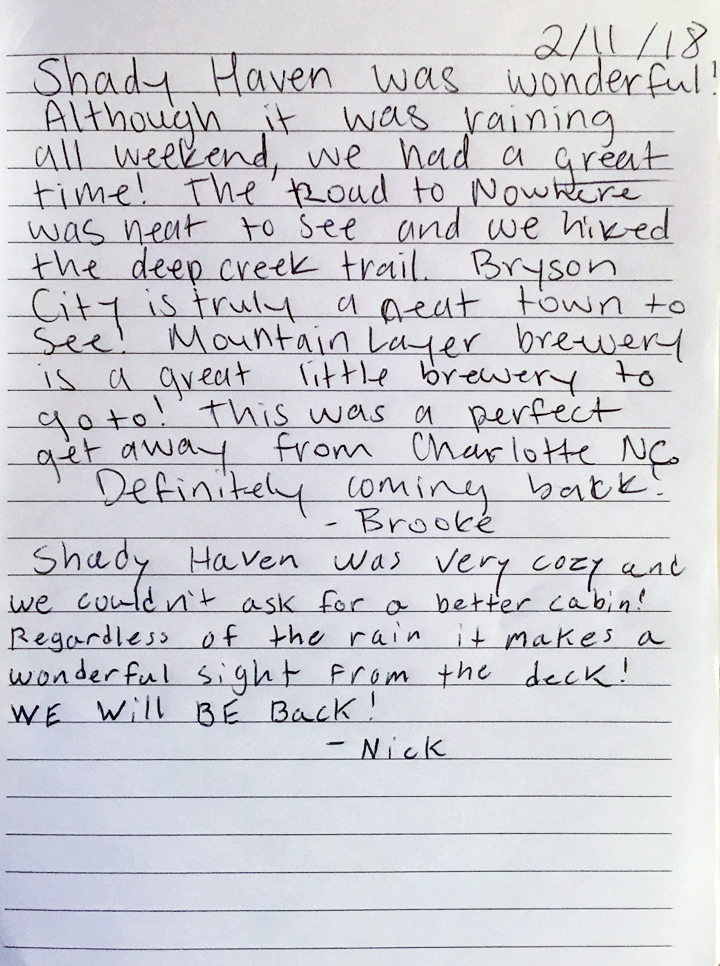 2/11/18
Shady Haven was wonderful!
Although it was raining
all weekend, we had a great
time! The Road to Nowhere
was neat to see and we hiked
the deep creek trail. Bryson
City is truly a neat town to
see! Mountain Layer brewery
is a great little brewery to
go to! This was a perfect
get away from Charlotte NC.
Definitely coming back!
- Brooke
Shady Haven was very cozy and
we couldn't ask for a better cabin!
Regardless of the rain it makes a
wonderful sight from the deck!
WE Will BE Back!
- Nick